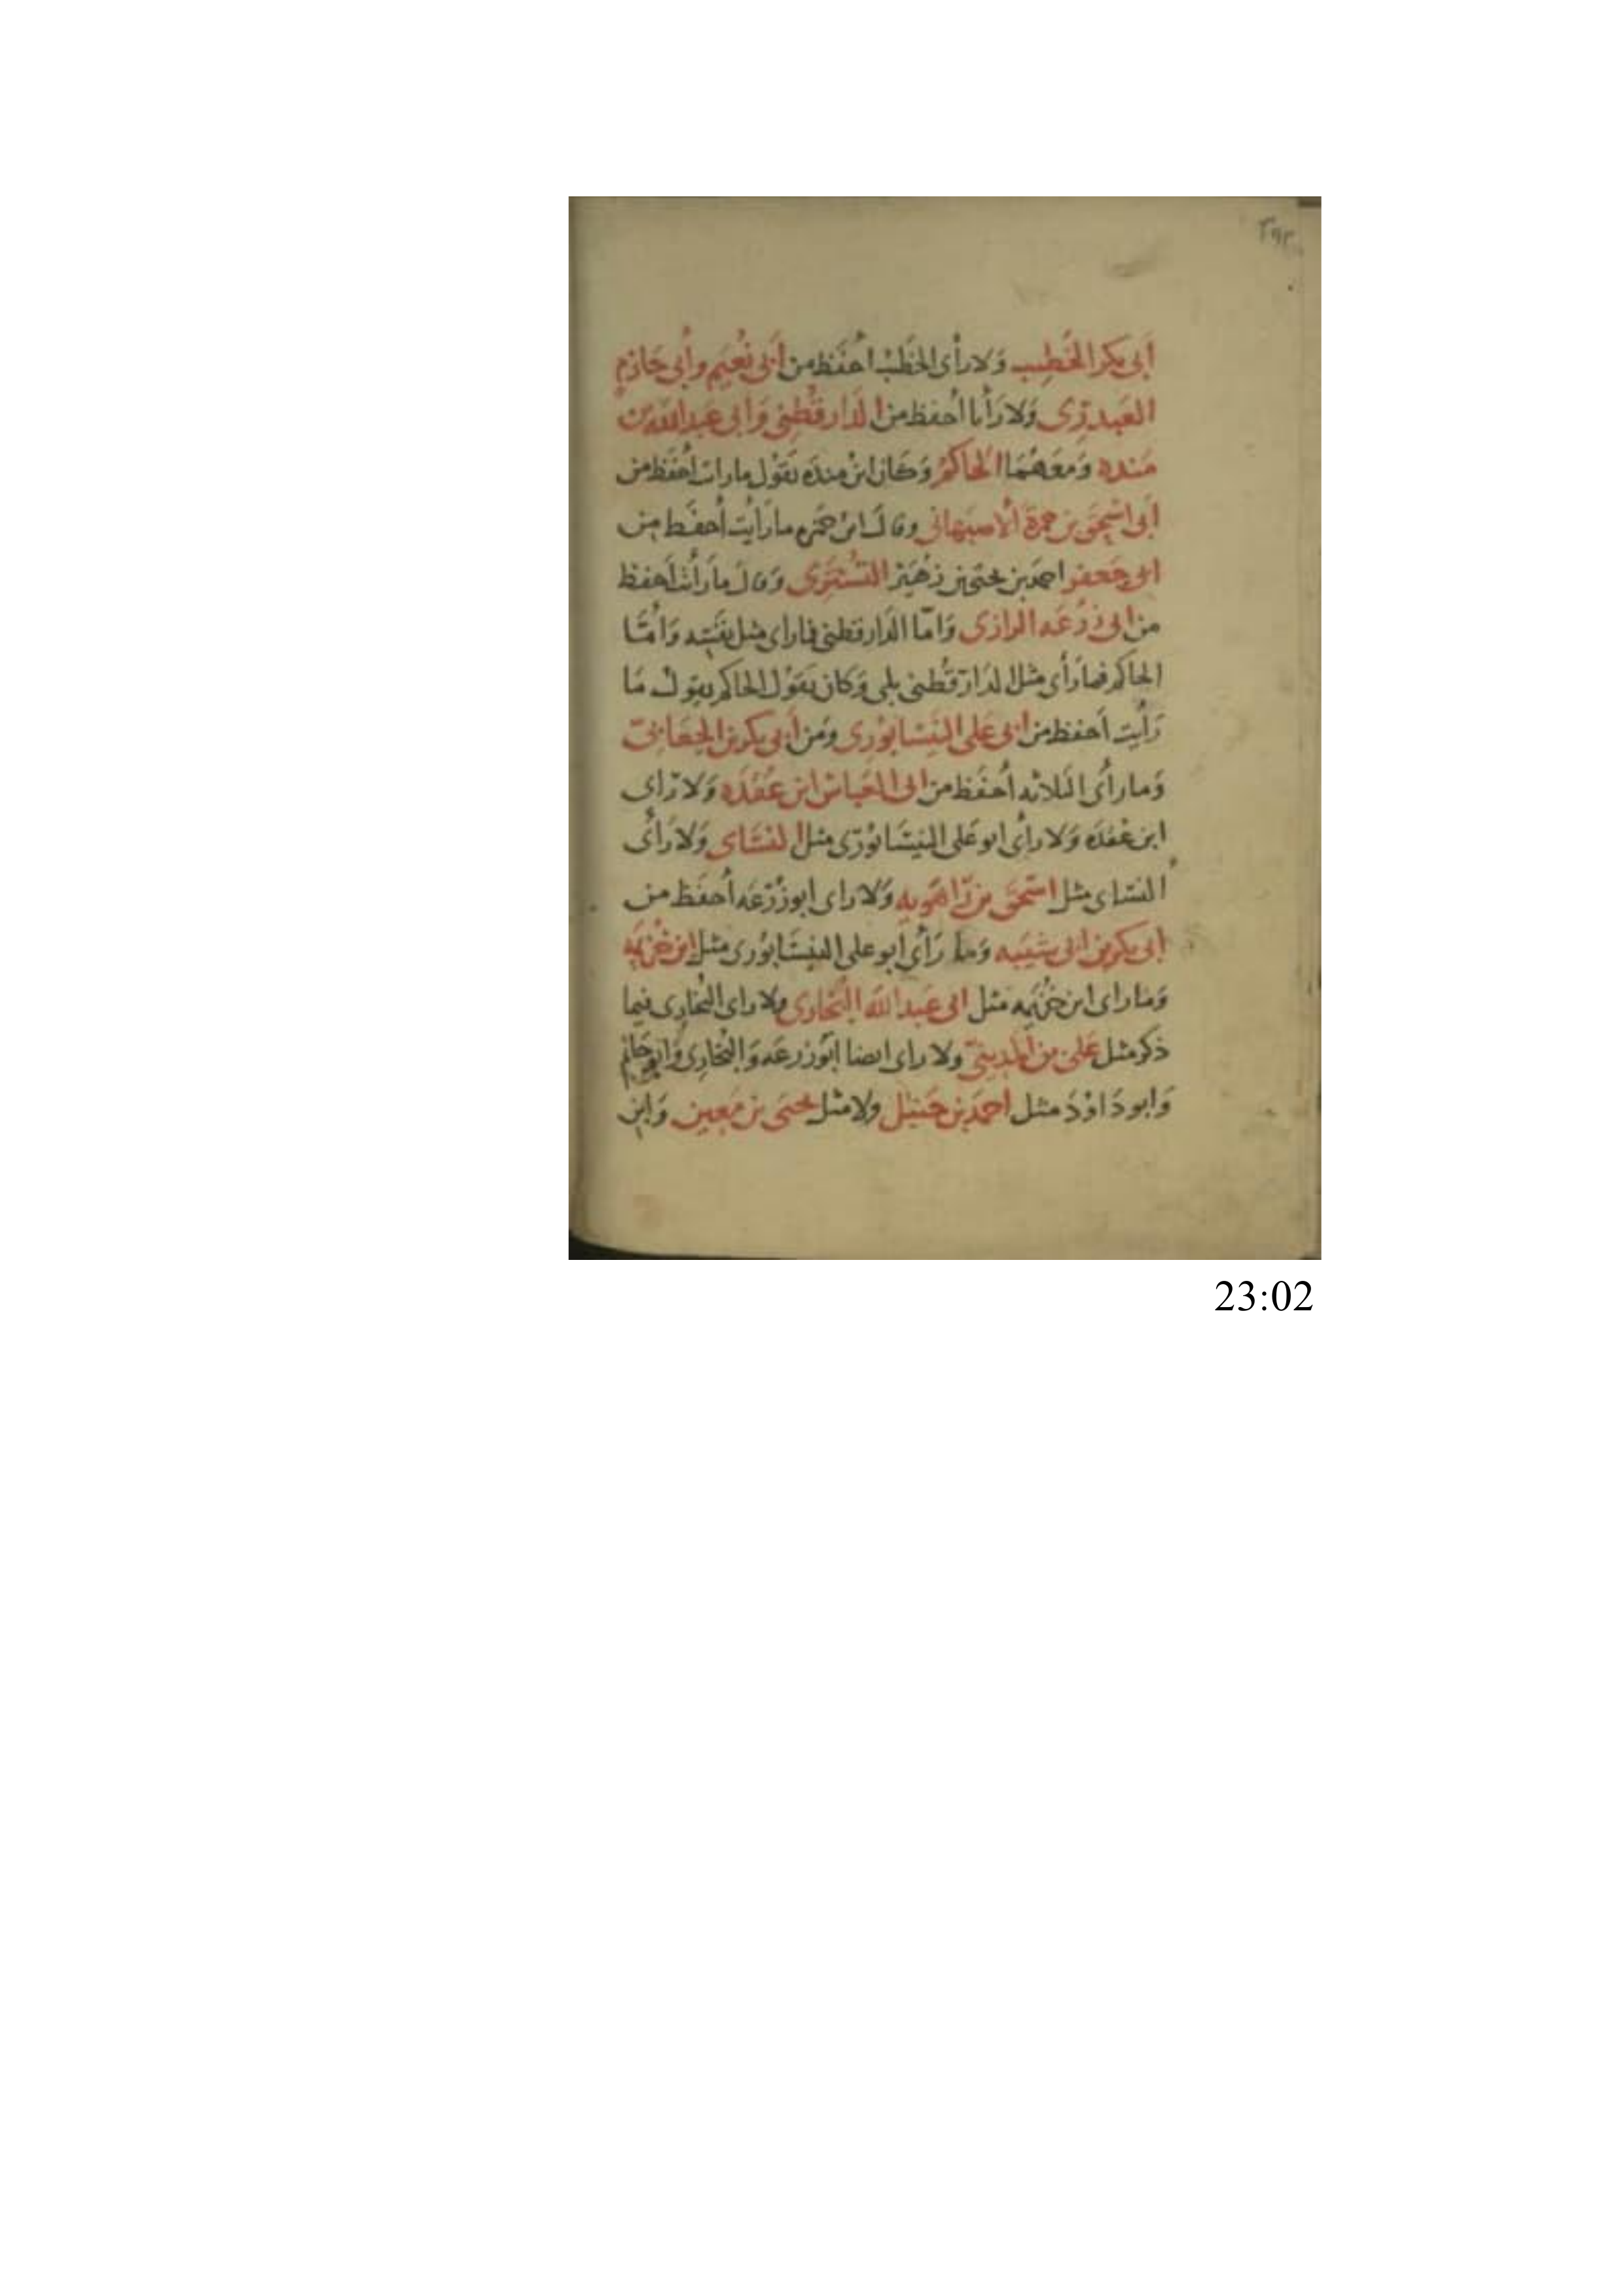 ٣٩٣
أبى بكر الخطيب وَلا رأى الخطيب أحفظ من أبى نُعَيم وأبى حَازم
العَبدرى وَلا رَأيا أحفظ من الدارقُطنى وَابى عبد الله بن
مَنده وَمعَهُمَا الحاكم وَكان ابن منده يَقوْل ما رات أحفَظ من
أبى اسْحٰق بن حمزة الأصبهانى وقال ابن حمزه ما رَأيت أحفَظ من
ابى جَعفر احمد بن يحيىٰ بن زهَير التُستَرى وَقال ما رَأيت أحفظ
من ابى زُرْعَه الرازى وَامّا الدارقطنى فما راى مثل نفسه وَأمّا
الحاكم فما رَأى مثل الدَارَقُطنى بلى وَكان يَقوْل الحاكم يقول مَا
رَأيت أحفظ من ابى عَلى النَيسَابوْرى وَمن أبى بكر بن الجعَابىّ
وَما رأى الثلاثه أحفَظ من ابى العَباس ابن عُقْدَه وَلا رَاى
ابن عُقدَه وَلا رأى ابو عَلى النيسَابوْرى مثل النسَاى وَلا رَأى
النسَاى مثل اسْحٰق بن رَاهَويه وَلا راى ابو زُرْعَه أحفَظ من
أبى بكر بن ابى شيبه وَما رَأى ابو على النيسَابوُرى مثل ابن خزَيمه
وَمَا راى ابن خُزَيمه مثل ابى عَبد الله البُخارى ولا راى البُخارى فيما
ذكر مثل عَلى بن المدينىّ ولا راى ايضا ابوُ زرعَه وَالبُخارى وَابو حَاتم
وَابو دَاوْدَ مثل احمَد بن حَنبل ولا مثل يحيَى بن مَعين وَابن
23:02